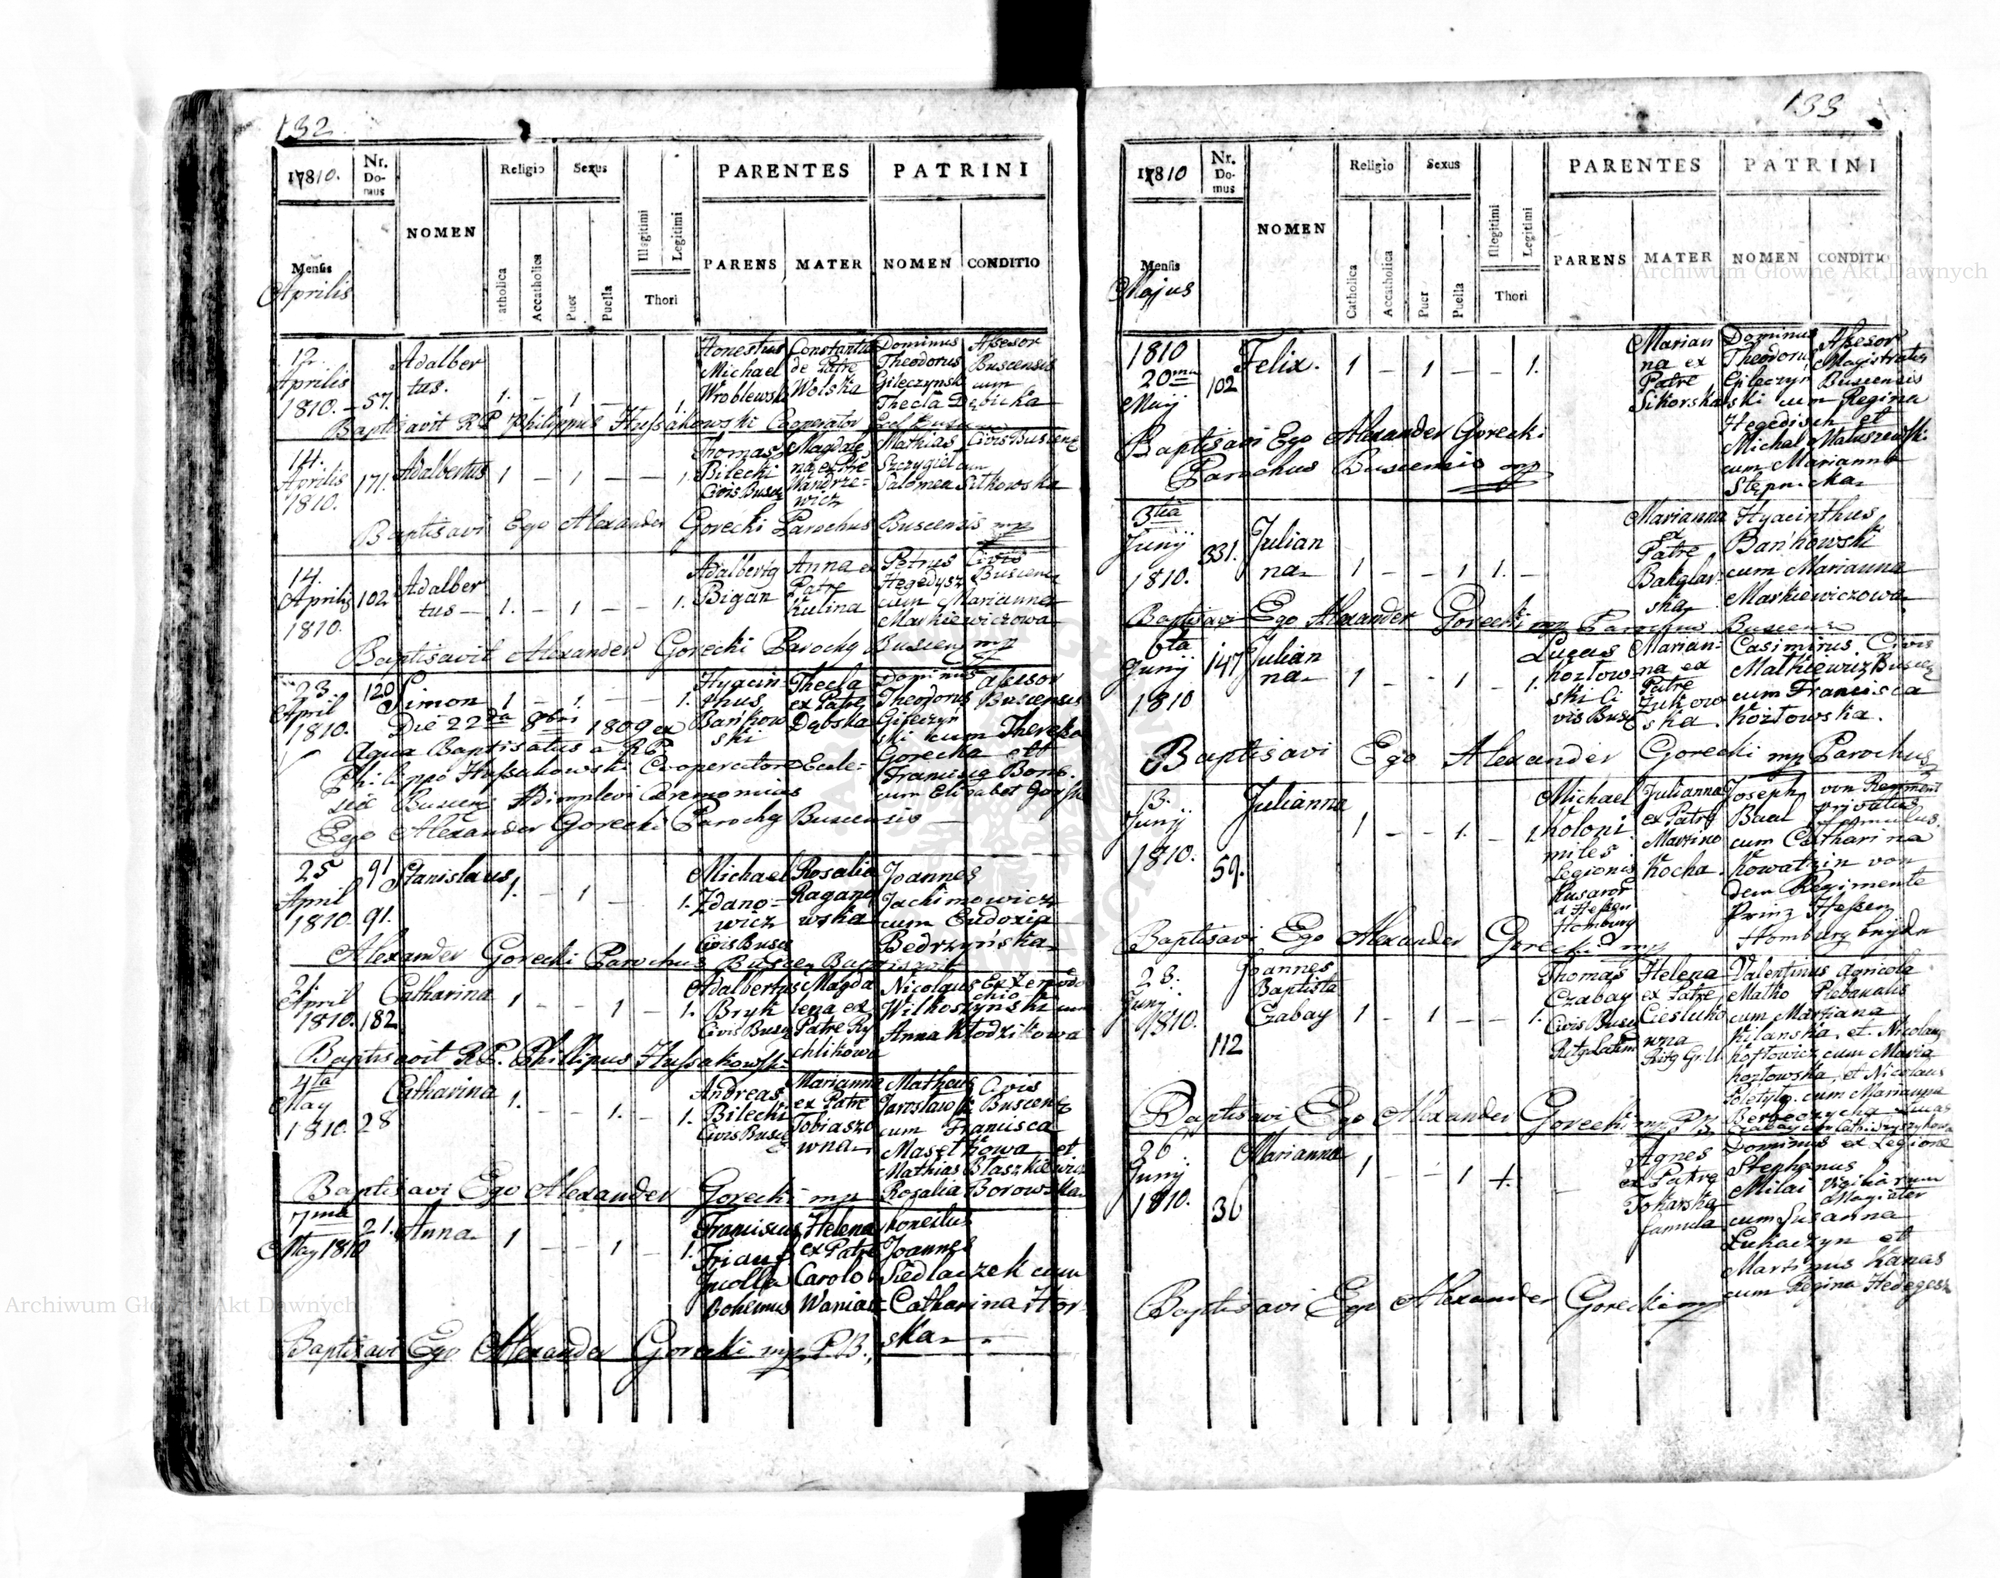 132.
17810.
Nr. Domus
NOMEN
Religio
Sexus
PARENTES
PATRINI
Mensis
Aprilis
Catholica
Accatholica
Puer
Puella
Illegitimi
Legitimi
Thori
PARENS
MATER
NOMEN
CONDITIO
12. Aprilis 1810. 57. Adalbertus. 1. – 1 – – 1.
Honestus Michael Wroblewski
Constantia de Patre Wolska
Dominus Assesor
Theodorus Buscensis
Gileczynski cum
Thecla Dębicka
Baptisavit RP Philippus Hussakowski Cooperator
14. Aprilis 1810. 171. Adalbertus 1 – 1 – – 1.
Thomas Bilecki Civis Busc
Magdalena ex Pre Wandrzewicz
Mathias Civis Buscens
Szczygiel cum
Salomea Sitkowska
Baptisavi Ego Alexander Gorecki Parochus Buscensis mp
14. Aprilis 1810. 102 Adalbertus 1. – 1 – – 1.
Adalbertg Bigan
Anna ex Patre Kulina
Petrus Civis
Hegedysz Buscens
cum Marianna
Markiewiczowa
Baptisavit Alexander Gorecki Parochg Buscens mp
23. April 1810. 120 Simon 1 – 1. – – 1.
Hyacinthus Bańkowski
Thecla ex Patre Dąbska
Dominus Assesor
Theodorus Buscensis
Gileczyński cum Theresia
Gorecka et
Francisco Bomb.
cum Elisabet
Die 22da 8bris 1809 ex
Aqua Baptisatus a RP.
Philippo Hussakowski Cooperatore Eccle-
siae Buscens Adimplevi Ceremonias
Ego Alexander Gorecki Parochg Buscensis
25 April 1810. 91. Stanislaus 1. – 1 – 1.
Michael Zdanowicz Civis Busc
Rosalia Raganowska
Joannes
Jachimowicz
cum Eudoxia
Bedrzyńska
Alexander Gorecki Parochus Buscen Baptisavit
April 1810. 182 Catharina 1 – – 1 – 1.
Adalbertus Bryk Civis Busc
Magdalena ex Patre Rychlikowa
Nicolaus
Wilkoszynski cum
Anna Kłodzikowa
Baptisavit R.P. Phillipus Hussakowski
4ta May 1810. 28 Catharina 1. – – 1. – 1.
Andreas Bilecki Civis Busc
Marianna ex Patre Tobiaszowna
Matheus Civis
Jarosławski Buscens
cum Francisca
Masełkowa et
Mathias Błaszkiewicz
Rosalia Borowska
Baptisavi Ego Alexander Gorecki mp
7ma May 1810 21. Anna 1 – – 1 – 1.
Franciscus Incolla Bohemus
Helena ex Patre Carolo
Honestus
Joannes
Siedlaczek cum
Catharina Horska
Baptisavi Ego Alexander Gorecki mp P.B.
133
17810
Nr. Domus
NOMEN
Religio
Sexus
PARENTES
PATRINI
Mensis
Majus
Catholica
Accatholica
Puer
Puella
Illegitimi
Legitimi
Thori
PARENS
MATER
NOMEN
CONDITIO
1810 20ma Maij 102 Felix. 1 – 1 – 1.
Marianna ex Patre Sikorska
Dominus Assesor
Theodorus Magistratus
Gileczyń Buscensis
ski cum Regina
Hegedisch et
Michal Matuszewski
cum Marianna
Stepnicka
Baptisavi Ego Alexander Gorecki
Parochus Buscensis mp
3tia Junij 1810. 331. Julianna 1 – – 1 1. –
Marianna ex Patre Bakalarska
Hyacinthus
Bańkowski
cum Marianna
Markiewiczowa
Baptisavi Ego Alexander Gorecki mp Parochus Buscens
6ta Junij 1810 147 Julianna 1 – – 1 – 1.
Lucas Kozłowski Civis Busc
Marianna ex Patre Zukowska
Casimirus Civis
Matkiewicz Buscens
cum Francisca
Kozłowska.
Baptisavi Ego Alexander Gorecki mp Parochus
13. Junij 1810. 59. Julianna 1 – – 1. – 1.
Michael Koloni miles Legionis Husaror d Hessen Homburg
Julianna ex Patre Martino Kocha
Joseph von Regiment
Baal privatus famulus.
cum Catharina
Kowatzin von
dem Regimente
Prinz Hessen
Homburg
Baptisavi Ego Alexander Gorecki mp
23. Junij 1810. 112 Joannes Baptista Czabay 1 – 1 – – 1.
Thomas Czabay Civis Busc Ritg Latini
Helena ex Patre Ciesluko wna Ritg Gr.
Valentinus Agricola
Matko Plebanalis
cum Marianna
Kilanska et Nicolaus
cum Maria
Kozłowska, et Nicolaus
cum Marianna
Baptisavi Ego Alexander Gorecki mp PB
26 Junij 1810. 36 Marianna 1 – – 1 1.
Agnes ex Patre Tokarska famula
Dominus ex Legione
Stephanus
Milai Vigiliarum Magister
cum Susanna
Lukaczyn et
Martinus Kanas
cum Regina Hedegesz
Baptisavi Ego Alexander Gorecki mp
Archiwum Główne Akt Dawnych
Archiwum Główne Akt Dawnych